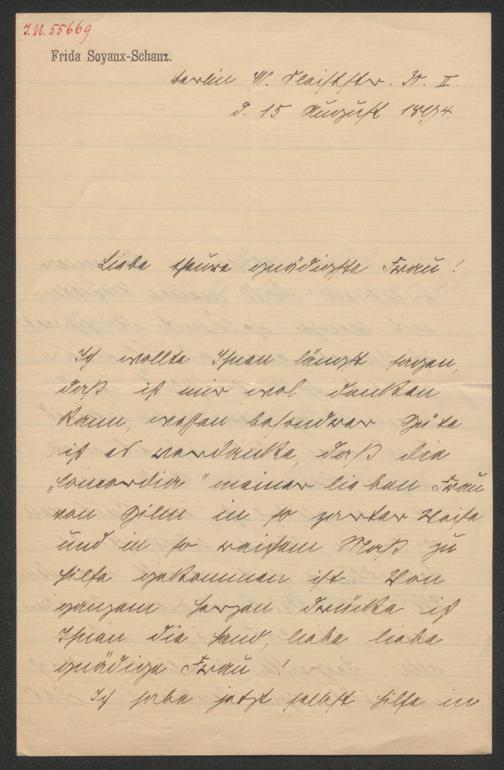 J.N. 55669
Frida Soyaux-Schanz.
Berlin W. Kleiststr. II.
d. 15 August 1894
Liebe theure gnädigste Frau!
Ich wollte Ihnen längst sagen,
daß ich mir wol denken
kann, wessen besondrer Güte
ich es verdanke, daß die
„Concordia" meiner lieben Frau
von Gilm in so zarter Weise
und in so reichem Maß zu
Hilfe gekommen ist. Von
ganzem Herzen drücke ich
Ihnen die Hand, liebe liebe
gnädige Frau!
Ich habe jetzt selbst Hilfe in